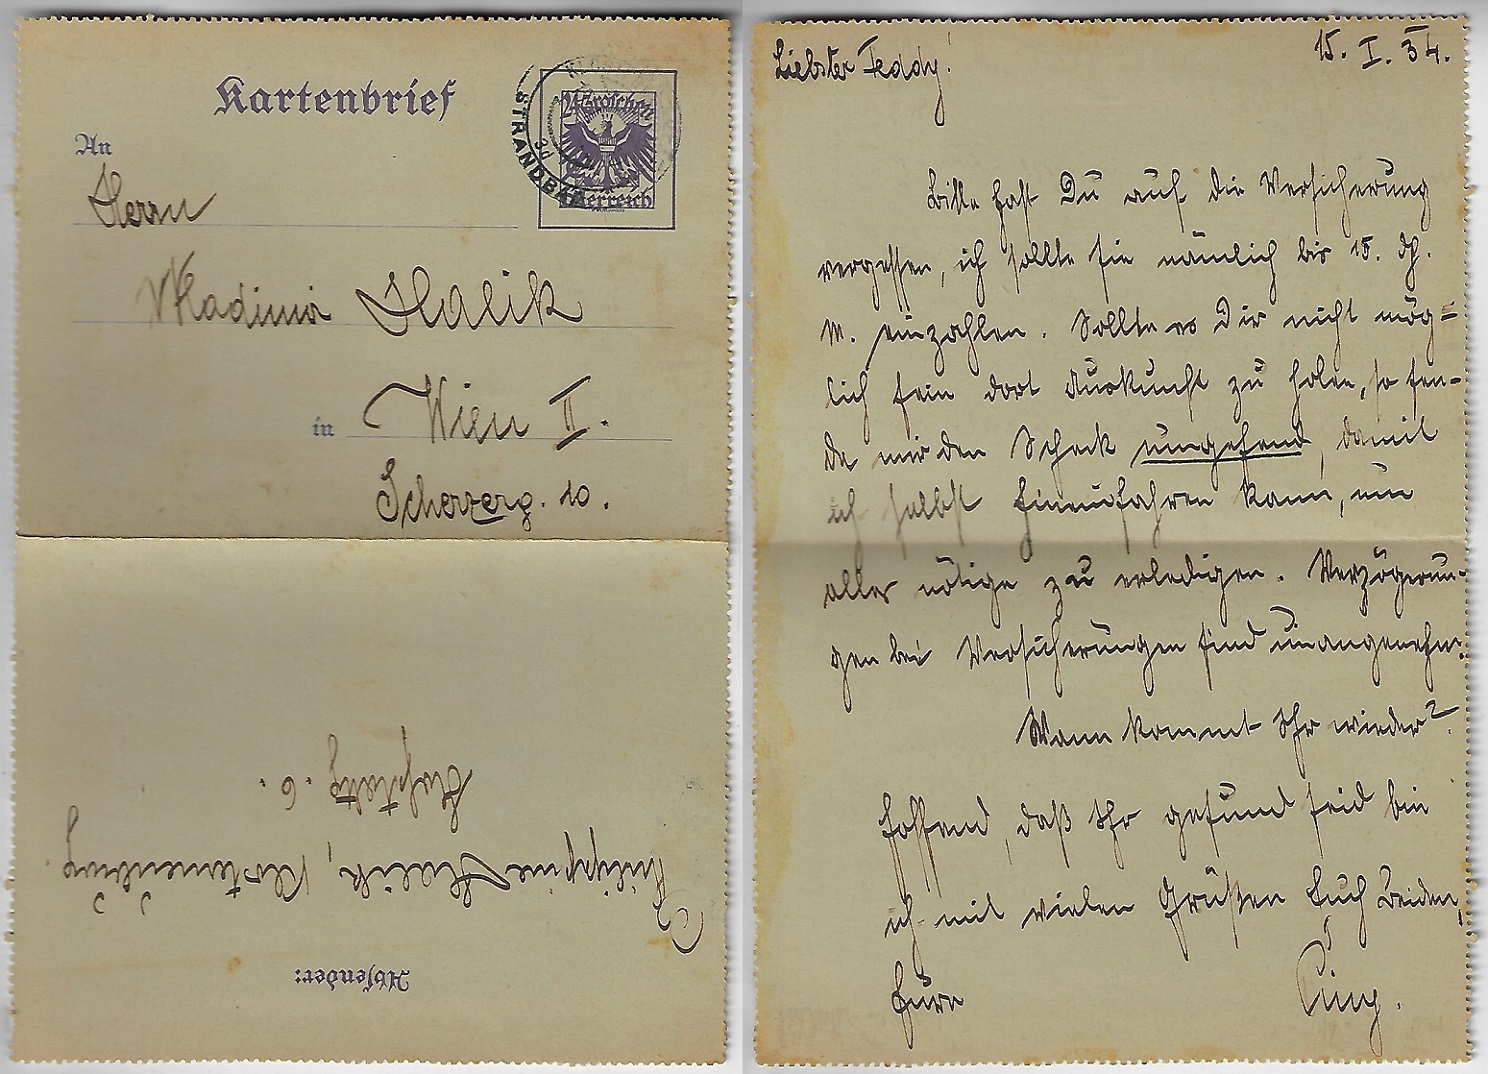 Kartenbrief
24 Groschen
Österreich
STRANDB
An
Herrn
Wladimir Halik
in Wien II.
Scherzerg. 10.
Absender:
Philippine Halik, Klosterneuburg
15. I. 34.
Liebster Teddy!
Bitte hast Du auf die Versicherung
vergessen, ich sollte sie nämlich bis 15. ds.
M. einzahlen. Sollte es Dir nicht mög=
lich sein dort Auskunft zu holen, so sen-
de mir den Scheck umgehend, damit
ich selbst hineinfahren kann, um
alles nötige zu erledigen. Verzögerun-
gen bei Versicherungen sind unangenehm.
Wann kommt Ihr wieder?
Hoffend, daß Ihr gesund seid bin
ich mit vielen Grüßen Euch Beiden,
Eure